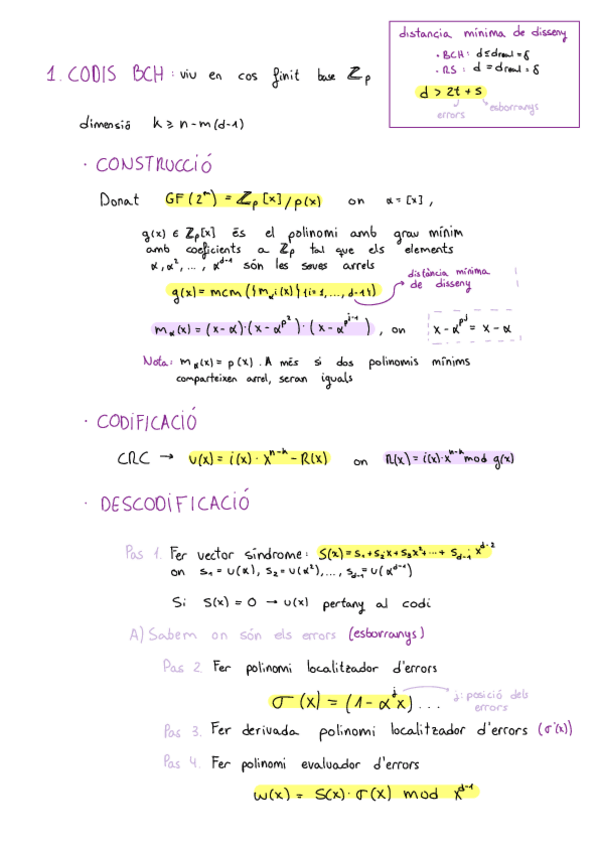 distancia mínima de disseny
· BCH: d ≤ dreal = δ
· RS: d = dreal = δ
d > 2t + s
errors
esborranys
1. CODIS BCH: viu en cos finit base ℤp
dimensió k ≥ n - m(d-1)
· CONSTRUCCIÓ
Donat GF(2^m) = ℤp[x]/p(x) on α = [x],
g(x) ∈ ℤp[x] és el polinomi amb grau mínim
amb coeficients a ℤp tal que els elements
α, α², ..., α^d-1 són les seves arrels
distància mínima
de disseny
g(x) = mcm({m_α^i(x) | i=1, ..., d-1})
m_α(x) = (x-α)·(x-α^p²)·(x-α^p^j-1), on x-α^p^j = x-α
Nota: m_α(x) = p(x). A més si dos polinomis mínims
comparteixen arrel, seran iguals
· CODIFICACIÓ
CRC → v(x) = i(x)·x^n-k - R(x) on R(x) = i(x)·x^n-k mod g(x)
· DESCODIFICACIÓ
Pas 1. Fer vector síndrome: S(x) = s₁+s₂x+s₃x²+...+s_d-1 x^d-2
on s₁ = υ(α), s₂ = υ(α²), ..., s_d-1 = υ(α^d-1)
Si S(x) = 0 → υ(x) pertany al codi
A) Sabem on són els errors (esborranys)
Pas 2. Fer polinomi localitzador d'errors
σ(x) = (1 - α^j x) ...
j: posició dels
errors
Pas 3. Fer derivada polinomi localitzador d'errors (σ'(x))
Pas 4. Fer polinomi evaluador d'errors
w(x) = S(x)·σ(x) mod x^d-1